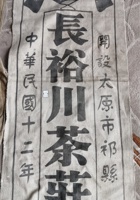 開設太原市祁縣
長裕川茶莊
中華民國十二年